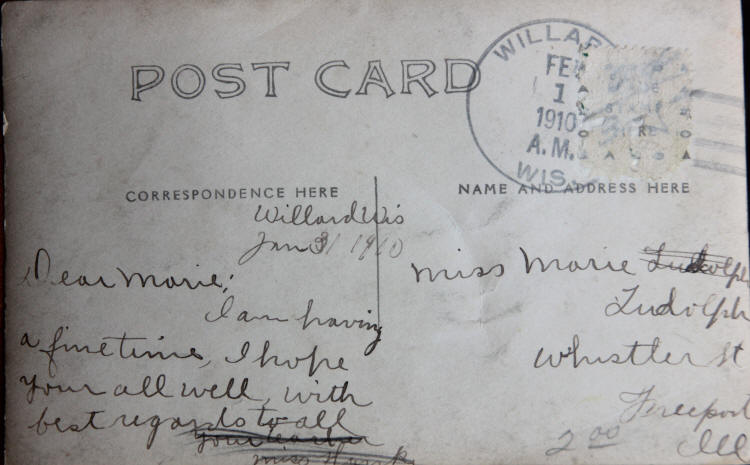 POST CARD
WILLAR
FE
1
1910
A.M.
WIS.
CORRESPONDENCE HERE
NAME AND ADDRESS HERE
Willard Wis
Jan 31 1910
Dear Marie;
I am having
a fine time, I hope
your all well, with
best regards to all
your teacher
miss
Miss Marie Ludolph
Ludolph
Whistler St
Freeport
Ill
2 00